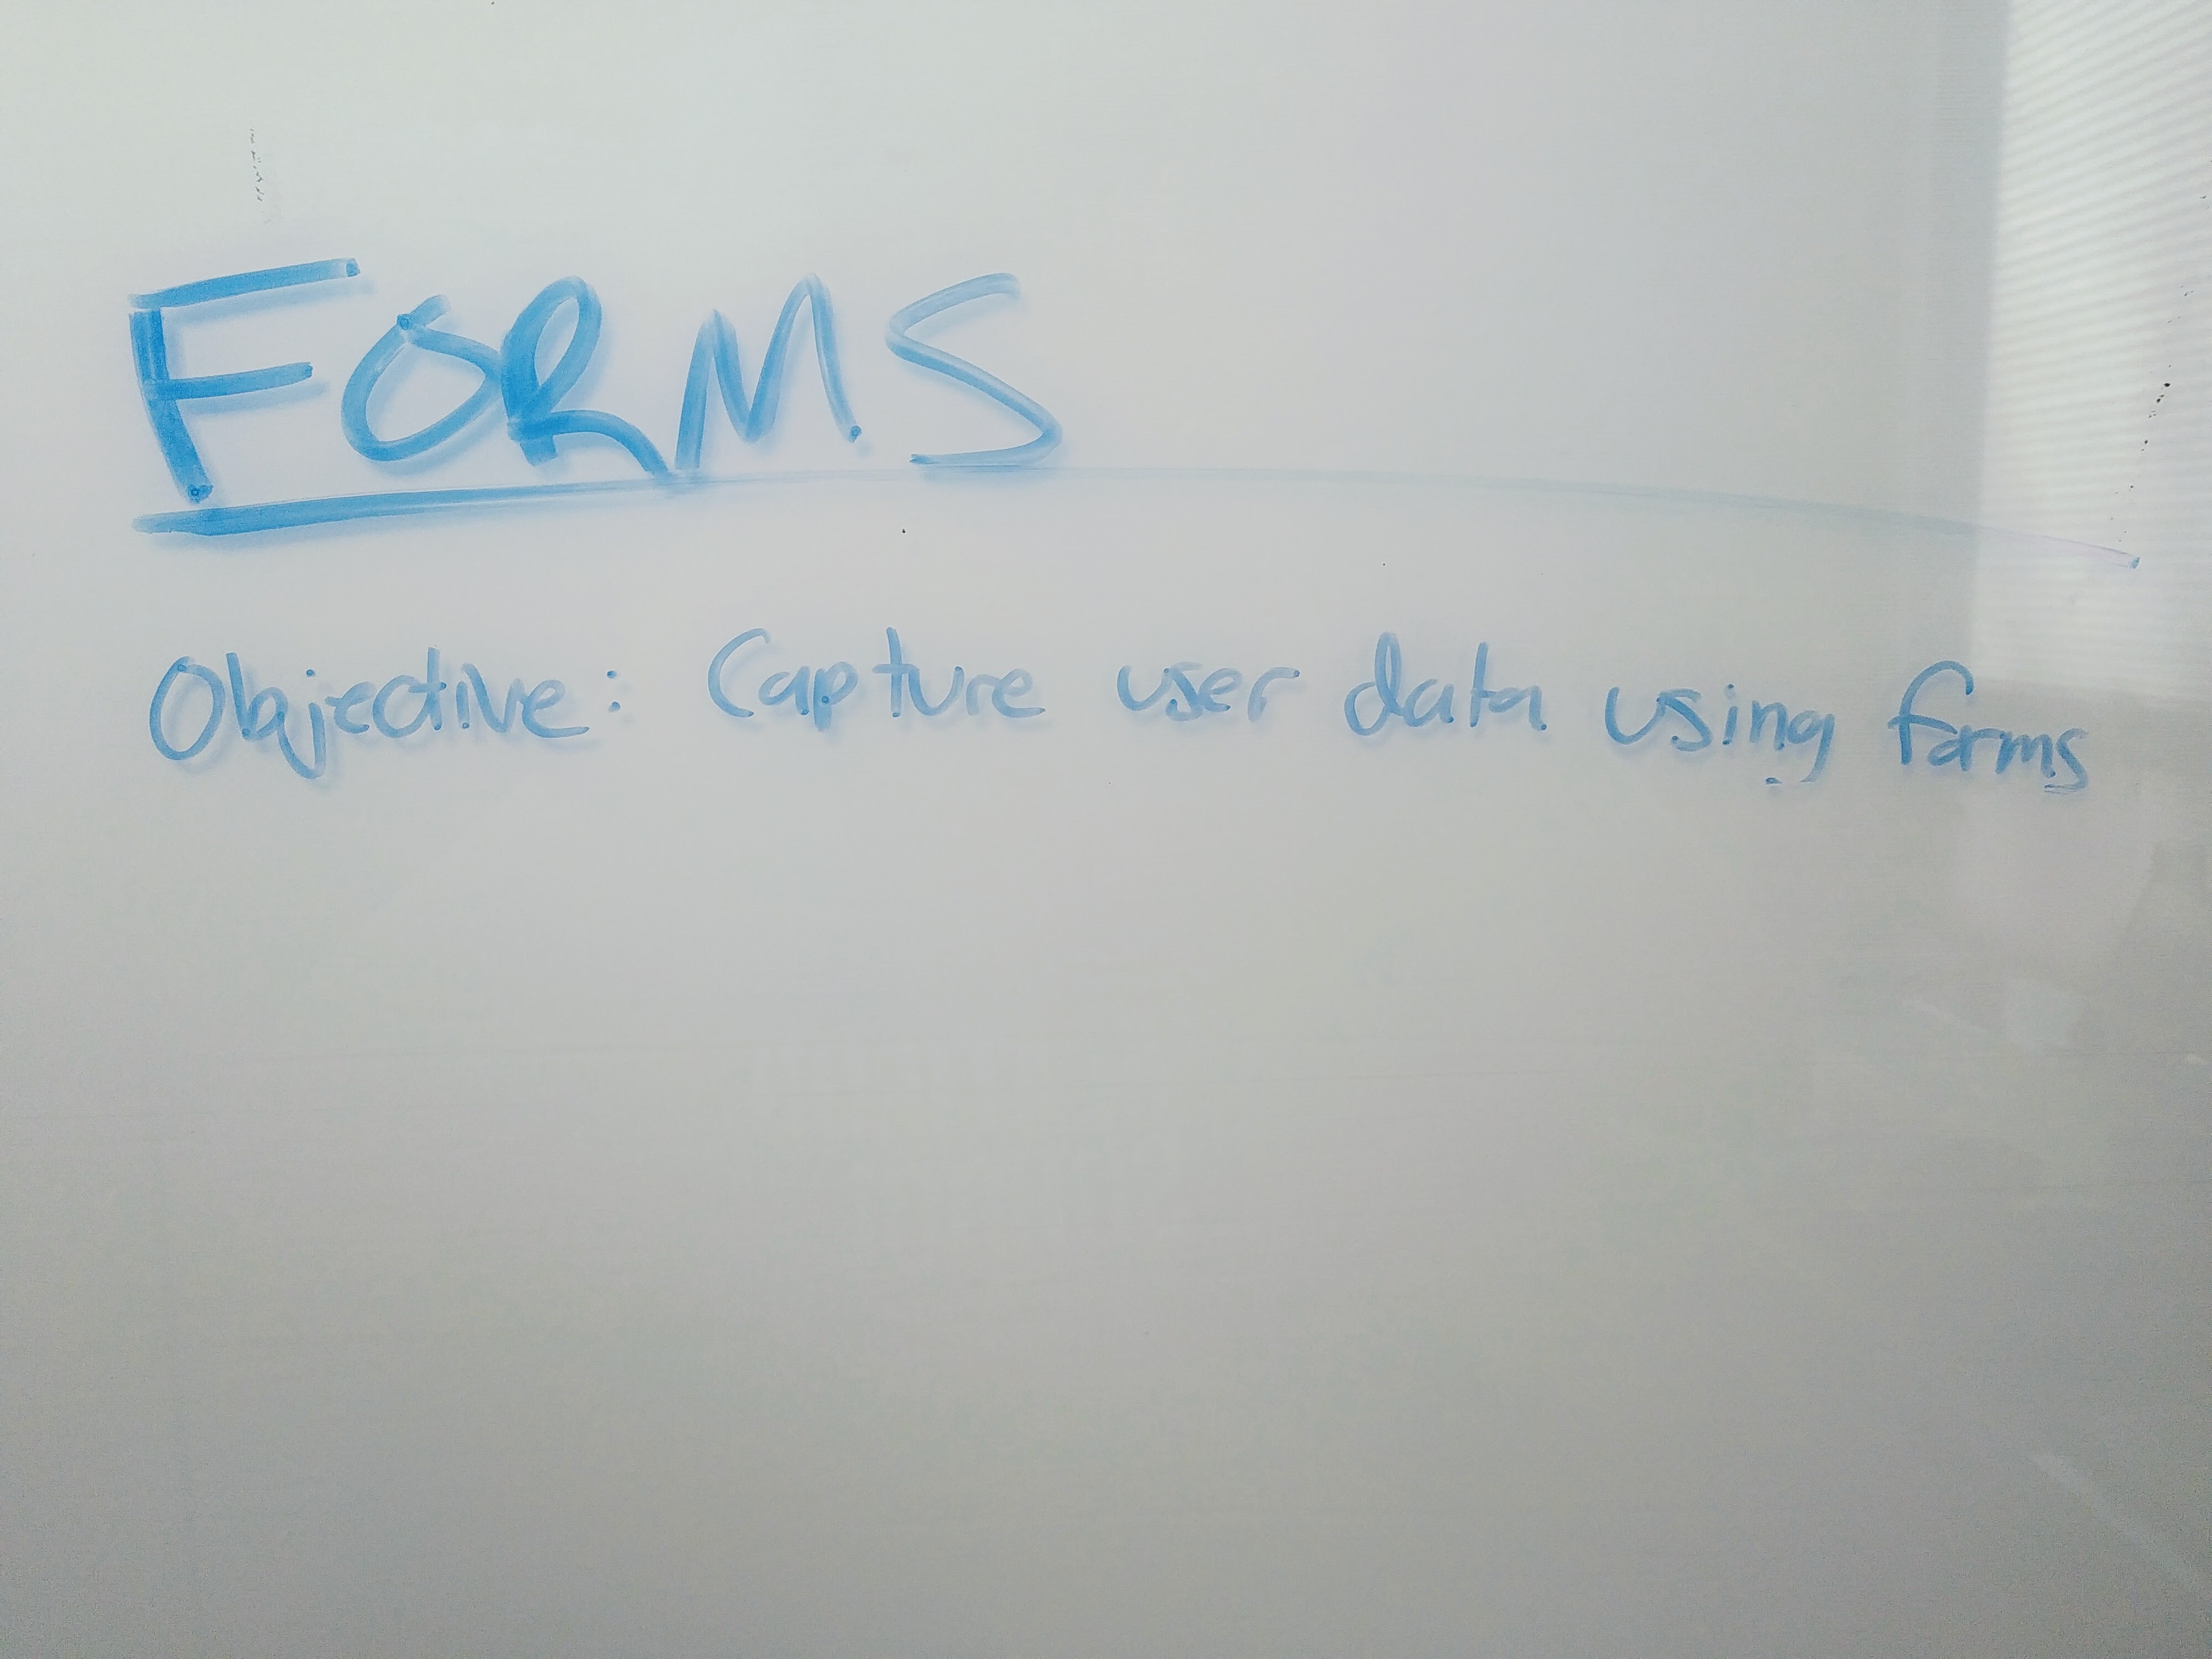 FORMS
Objective: Capture user data using forms